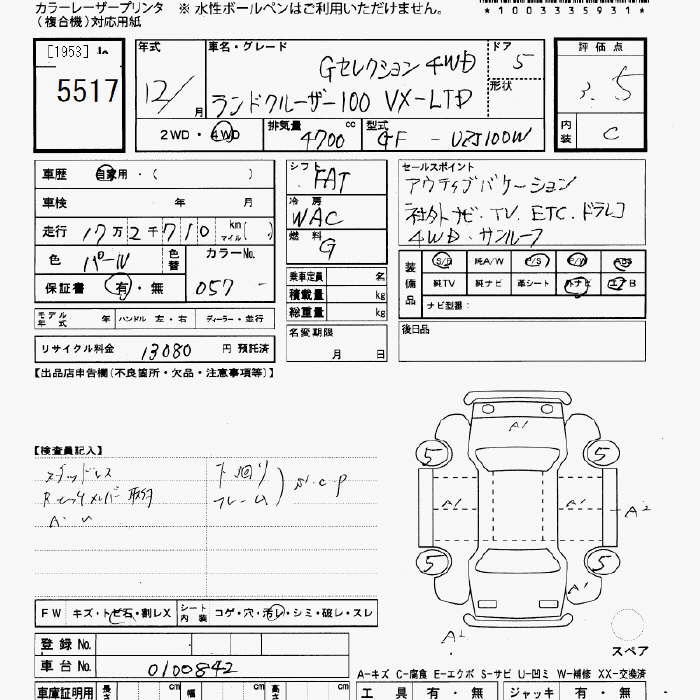 カラーレーザープリンタ ※ 水性ボールペンはご利用いただけません。
(複合機)対応用紙
*1003335931*
[1953]
5517
年式
12/ 月
車名・グレード
Gセレクション 4WD
ランドクルーザー100 VX-LTD
ドア
5
形状
評価点
3.5
内装
C
2WD・4WD
排気量 cc
4700
型式
GF - UZJ100W
車歴 自家用・( )
車検 年 月
走行 17万2千710 km マイル( )
色 パール 色替
カラーNo.
057 -
保証書 有・無
シフト
FAT
冷房
WAC
燃料
G
乗車定員 名
積載量 kg
総重量 kg
セールスポイント
アクティブバケーション
社外ナビ・TV. ETC. ドラレコ
4WD・サンルーフ
装備品
S/R 純A/W P/S P/W ABS
純TV 純ナビ 革シート 外ナビ エアB
ナビ型番:
モデル年式 年 ハンドル 左・右 ディーラー・並行
名変期限
月 日
後日品
リサイクル料金 13080 円 預託済
【出品店申告欄(不良箇所・欠品・注意事項等)】
【検査員記入】
スタッドレス
下回り
フレーム
S.C.P
A1
5 5
A1 A1 A2
5 5
A1
A2
スペア
FW キズ・トビ石・割レX
シート内装 コゲ・穴・汚レ・シミ・破レ・スレ
登録No.
車台No. 0100842
A-キズ C-腐食 E-エクボ S-サビ U-凹ミ W-補修 XX-交換済
車庫証明用 長さ cm 幅 cm 高さ cm
工具 有・無 ジャッキ 有・無